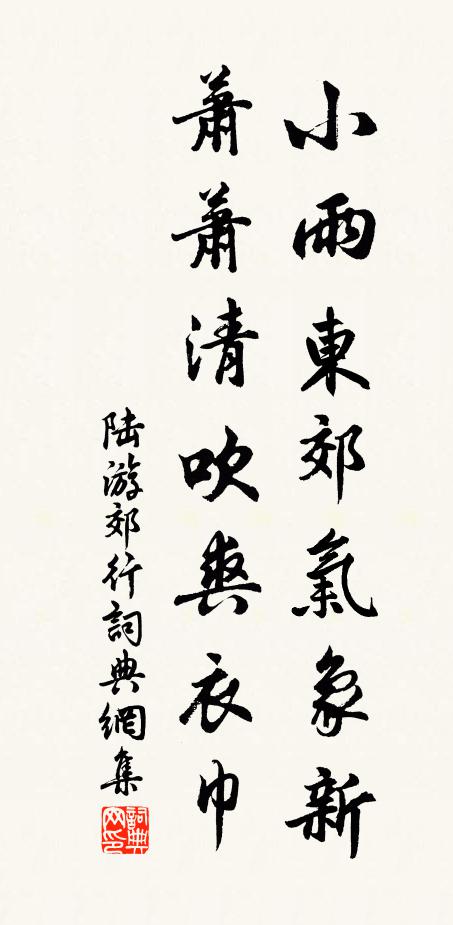 小雨東郊氣象新
蕭蕭清吹爽衣巾
陆游郊行詞典網集
詞典
网印